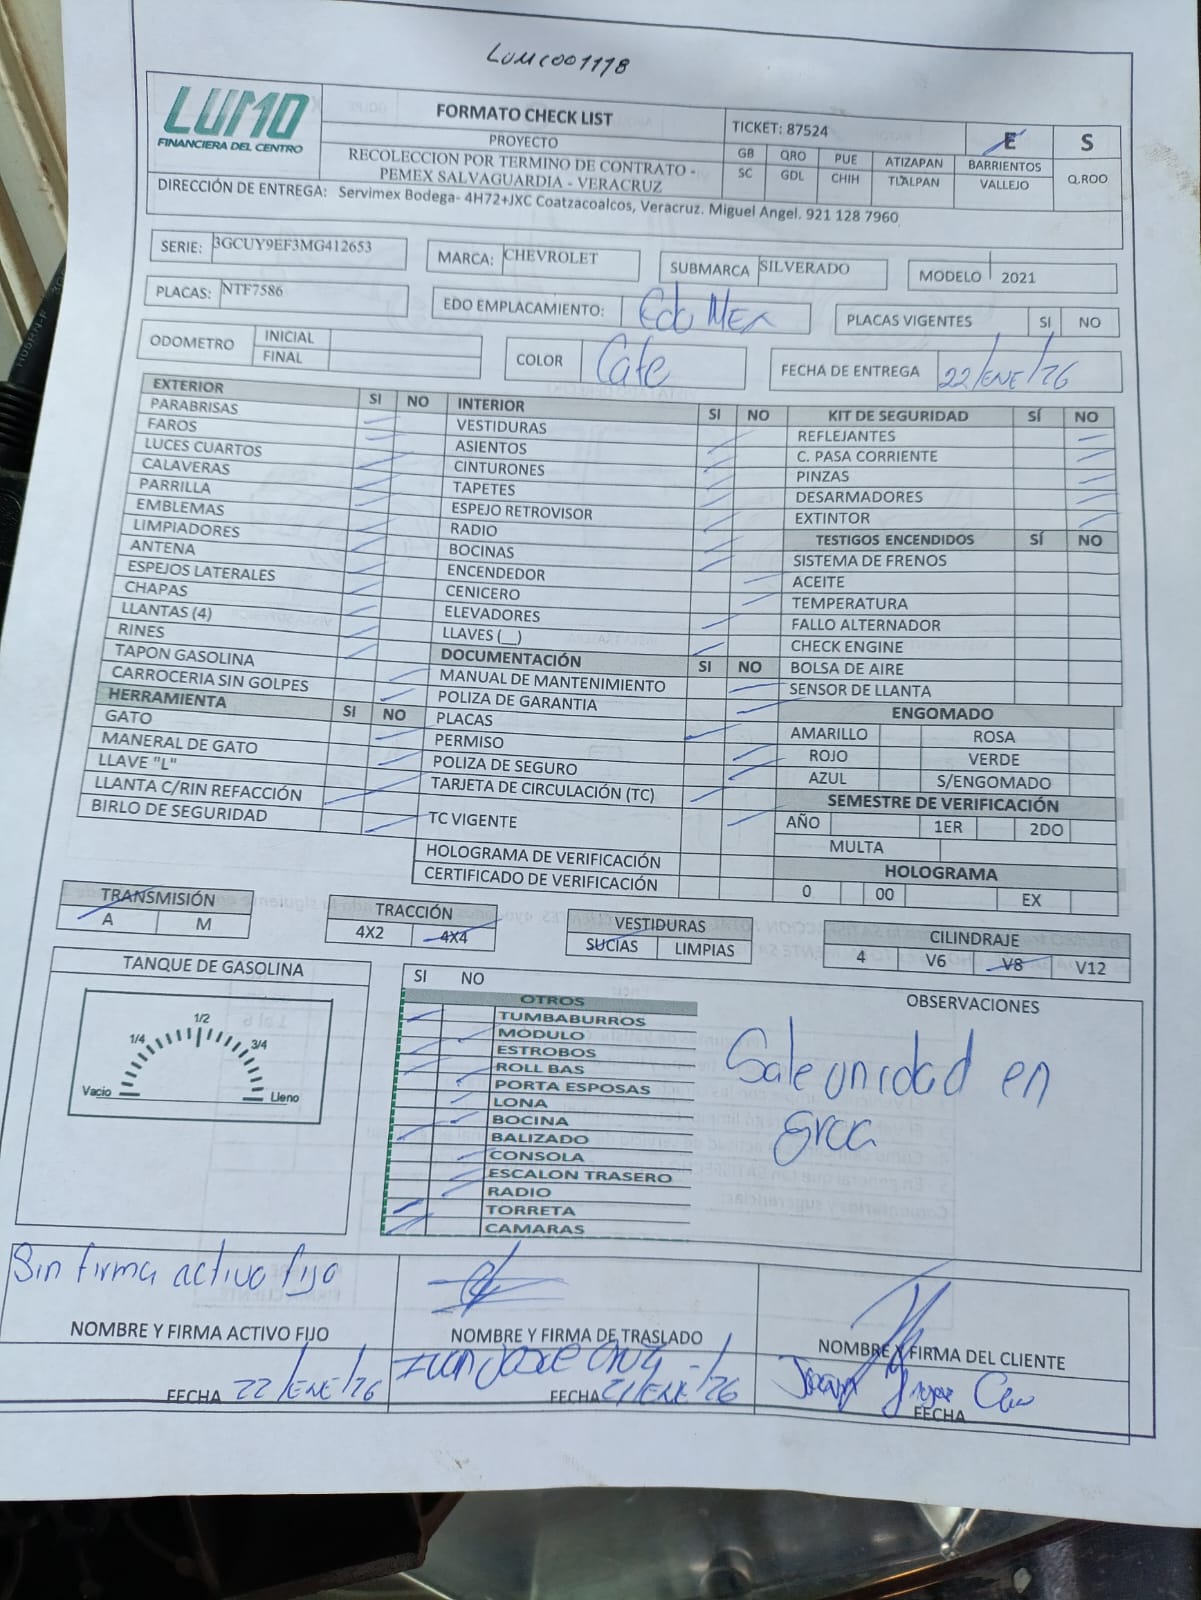 LUMC001178
LUMO
FINANCIERA DEL CENTRO
FORMATO CHECK LIST
PROYECTO
RECOLECCION POR TERMINO DE CONTRATO -
PEMEX SALVAGUARDIA - VERACRUZ
TICKET: 87524
E
S
GB QRO PUE ATIZAPAN BARRIENTOS
SC GDL CHIH TLALPAN VALLEJO Q.ROO
DIRECCIÓN DE ENTREGA: Servimex Bodega- 4H72+JXC Coatzacoalcos, Veracruz. Miguel Angel. 921 128 7960
SERIE: 3GCUY9EF3MG412653
MARCA: CHEVROLET
SUBMARCA SILVERADO
MODELO 2021
PLACAS: NTF7586
EDO EMPLACAMIENTO: Edo Mex
PLACAS VIGENTES SI NO
ODOMETRO INICIAL
FINAL
COLOR Cafe
FECHA DE ENTREGA 22/ENE/26
EXTERIOR SI NO
PARABRISAS
FAROS
LUCES CUARTOS
CALAVERAS
PARRILLA
EMBLEMAS
LIMPIADORES
ANTENA
ESPEJOS LATERALES
CHAPAS
LLANTAS (4)
RINES
TAPON GASOLINA
CARROCERIA SIN GOLPES
HERRAMIENTA SI NO
GATO
MANERAL DE GATO
LLAVE "L"
LLANTA C/RIN REFACCIÓN
BIRLO DE SEGURIDAD
INTERIOR SI NO
VESTIDURAS
ASIENTOS
CINTURONES
TAPETES
ESPEJO RETROVISOR
RADIO
BOCINAS
ENCENDEDOR
CENICERO
ELEVADORES
LLAVES (__)
DOCUMENTACIÓN SI NO
MANUAL DE MANTENIMIENTO
POLIZA DE GARANTIA
PLACAS
PERMISO
POLIZA DE SEGURO
TARJETA DE CIRCULACIÓN (TC)
TC VIGENTE
HOLOGRAMA DE VERIFICACIÓN
CERTIFICADO DE VERIFICACIÓN
KIT DE SEGURIDAD SÍ NO
REFLEJANTES
C. PASA CORRIENTE
PINZAS
DESARMADORES
EXTINTOR
TESTIGOS ENCENDIDOS SÍ NO
SISTEMA DE FRENOS
ACEITE
TEMPERATURA
FALLO ALTERNADOR
CHECK ENGINE
BOLSA DE AIRE
SENSOR DE LLANTA
ENGOMADO
AMARILLO ROSA
ROJO VERDE
AZUL S/ENGOMADO
SEMESTRE DE VERIFICACIÓN
AÑO 1ER 2DO
MULTA
HOLOGRAMA
0 00 EX
TRANSMISIÓN
A M
TRACCIÓN
4X2 4X4
VESTIDURAS
SUCIAS LIMPIAS
CILINDRAJE
4 V6 V8 V12
TANQUE DE GASOLINA
Vacio 1/4 1/2 3/4 Lleno
SI NO
OTROS
TUMBABURROS
MODULO
ESTROBOS
ROLL BAS
PORTA ESPOSAS
LONA
BOCINA
BALIZADO
CONSOLA
ESCALON TRASERO
RADIO
TORRETA
CAMARAS
OBSERVACIONES
Sale unidad en
grua
Sin firma activo fijo
NOMBRE Y FIRMA ACTIVO FIJO
FECHA 22/ENE/26
NOMBRE Y FIRMA DE TRASLADO
FECHA 21/ENE/26
NOMBRE Y FIRMA DEL CLIENTE
FECHA